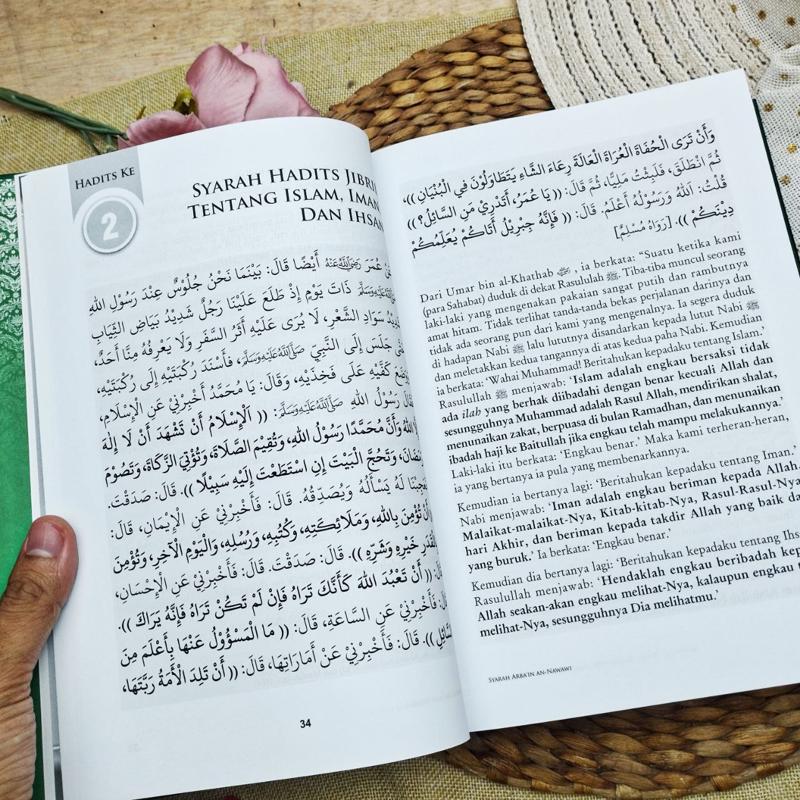 HADITS KE
2
SYARAH HADITS JIBRIL
TENTANG ISLAM, IMAN
DAN IHSAN
عُمَرَ رَضِيَ اللَّهُ عَنْهُ أَيْضًا قَالَ: بَيْنَمَا نَحْنُ جُلُوْسٌ عِنْدَ رَسُوْلِ اللهِ
صَلَّى اللَّهُ عَلَيْهِ وَسَلَّمَ ذَاتَ يَوْمٍ إِذْ طَلَعَ عَلَيْنَا رَجُلٌ شَدِيْدُ بَيَاضِ الثِّيَابِ
سَوَادِ الشَّعْرِ، لَا يُرَى عَلَيْهِ أَثَرُ السَّفَرِ وَلَا يَعْرِفُهُ مِنَّا أَحَدٌ،
جَلَسَ إِلَى النَّبِيِّ صَلَّى اللَّهُ عَلَيْهِ وَسَلَّمَ، فَأَسْنَدَ رُكْبَتَيْهِ إِلَى رُكْبَتَيْهِ،
كَفَّيْهِ عَلَى فَخِذَيْهِ، وَقَالَ: يَا مُحَمَّدُ أَخْبِرْنِيْ عَنِ الْإِسْلَامِ،
رَسُوْلُ اللهِ صَلَّى اللَّهُ عَلَيْهِ وَسَلَّمَ: (( اَلْإِسْلَامُ أَنْ تَشْهَدَ أَنْ لَا إِلَهَ
اللهُ وَأَنَّ مُحَمَّدًا رَسُوْلُ اللهِ، وَتُقِيْمَ الصَّلَاةَ، وَتُؤْتِيَ الزَّكَاةَ، وَتَصُوْمَ
وَتَحُجَّ الْبَيْتَ إِنِ اسْتَطَعْتَ إِلَيْهِ سَبِيْلًا )). قَالَ: صَدَقْتَ.
لَهُ يَسْأَلُهُ وَيُصَدِّقُهُ. قَالَ: فَأَخْبِرْنِيْ عَنِ الْإِيْمَانِ، قَالَ:
تُؤْمِنَ بِاللهِ، وَمَلَائِكَتِهِ، وَكُتُبِهِ، وَرُسُلِهِ، وَالْيَوْمِ الْآخِرِ، وَتُؤْمِنَ
خَيْرِهِ وَشَرِّهِ )). قَالَ: صَدَقْتَ. قَالَ: فَأَخْبِرْنِيْ عَنِ الْإِحْسَانِ،
(( أَنْ تَعْبُدَ اللهَ كَأَنَّكَ تَرَاهُ فَإِنْ لَمْ تَكُنْ تَرَاهُ فَإِنَّهُ يَرَاكَ )).
فَأَخْبِرْنِيْ عَنِ السَّاعَةِ، قَالَ: (( مَا الْمَسْؤُوْلُ عَنْهَا بِأَعْلَمَ مِنَ
)). قَالَ: فَأَخْبِرْنِيْ عَنْ أَمَارَاتِهَا، قَالَ: (( أَنْ تَلِدَ الْأَمَةُ رَبَّتَهَا،
34
وَأَنْ تَرَى الْحُفَاةَ الْعُرَاةَ الْعَالَةَ رِعَاءَ الشَّاءِ يَتَطَاوَلُوْنَ فِي الْبُنْيَانِ ))،
ثُمَّ انْطَلَقَ، فَلَبِثْتُ مَلِيًّا، ثُمَّ قَالَ: (( يَا عُمَرُ، أَتَدْرِيْ مَنِ السَّائِلُ؟ ))
قُلْتُ: اَللهُ وَرَسُوْلُهُ أَعْلَمُ. قَالَ: (( فَإِنَّهُ جِبْرِيْلُ أَتَاكُمْ يُعَلِّمُكُمْ
دِيْنَكُمْ )). [رَوَاهُ مُسْلِمٌ]
Dari Umar bin al-Khathab, ia berkata: “Suatu ketika kami
(para Sahabat) duduk di dekat Rasulullah ﷺ. Tiba-tiba muncul seorang
laki-laki yang mengenakan pakaian sangat putih dan rambutnya
amat hitam. Tidak terlihat tanda-tanda bekas perjalanan darinya dan
tidak ada seorang pun dari kami yang mengenalnya. Ia segera duduk
di hadapan Nabi ﷺ lalu lututnya disandarkan kepada lutut Nabi ﷺ
dan meletakkan kedua tangannya di atas kedua paha Nabi. Kemudian
ia berkata: ‘Wahai Muhammad! Beritahukan kepadaku tentang Islam.’
Rasulullah ﷺ menjawab: ‘Islam adalah engkau bersaksi tidak
ada ilah yang berhak diibadahi dengan benar kecuali Allah dan
sesungguhnya Muhammad adalah Rasul Allah, mendirikan shalat,
menunaikan zakat, berpuasa di bulan Ramadhan, dan menunaikan
ibadah haji ke Baitullah jika engkau telah mampu melakukannya.’
Laki-laki itu berkata: ‘Engkau benar.’ Maka kami terheran-heran,
ia yang bertanya ia pula yang membenarkannya.
Kemudian ia bertanya lagi: ‘Beritahukan kepadaku tentang Iman.’
Nabi menjawab: ‘Iman adalah engkau beriman kepada Allah,
Malaikat-malaikat-Nya, Kitab-kitab-Nya, Rasul-Rasul-Nya,
hari Akhir, dan beriman kepada takdir Allah yang baik dan
yang buruk.’ Ia berkata: ‘Engkau benar.’
Kemudian dia bertanya lagi: ‘Beritahukan kepadaku tentang
Rasulullah menjawab: ‘Hendaklah engkau beribadah
Allah seakan-akan engkau melihat-Nya, kalaupun engkau
melihat-Nya, sesungguhnya Dia melihatmu.’
SYARAH ARBA'IN AN-NAWAWI